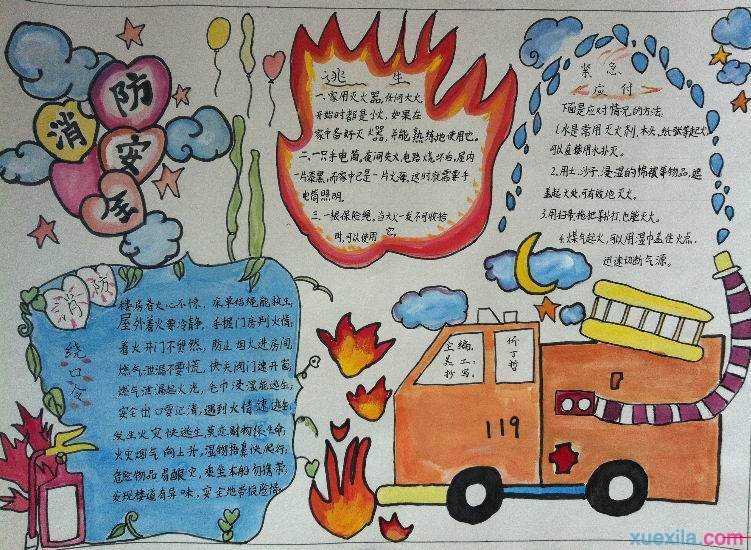 消防安全
逃 生
一.家用灭火器,任何大火,
开始时都是小火,如果在
家中备好灭火器,并能熟练地使用它。
二.一只手电筒,夜间发火,电路烧坏后,屋内
一片漆黑,而家中已是一片火海,这时就需要手
电筒照明。
三.一根保险绳,当大火一发不可收拾
时,可以使用它。
紧急
应付
下面是应对情况的方法.
1.水是常用灭火剂,木头,纸张等起火,
可以直接用水扑灭。
2.用土,沙子,浸湿的棉被等物品,覆
盖起火处,可有效地灭火。
3.用扫帚,拖把等扑打,也能灭火。
4.煤气起火,可以用湿巾盖住火点.
迅速切断气源。
消防
绕口令
楼房着火心不惊,床单结绳能救生,
屋外着火要冷静,手握门房判火情,
着火开门不贸然,防止烟火进房间,
燃气泄漏不要慌,快关阀门速开窗,
燃气泄漏起火光,毛巾浸湿能逃生,
安全出口要记清,遇到火情速逃生,
发生火灾快逃生,莫恋财物保生命,
火灾烟气向上升,湿物捂鼻快爬行,
危险物品易酿灾,乘坐车船勿携带,
发现楼道有异味,安全地带报险情.
主编.
美工.
抄写.
价
丁
哲
119
xuexila.com